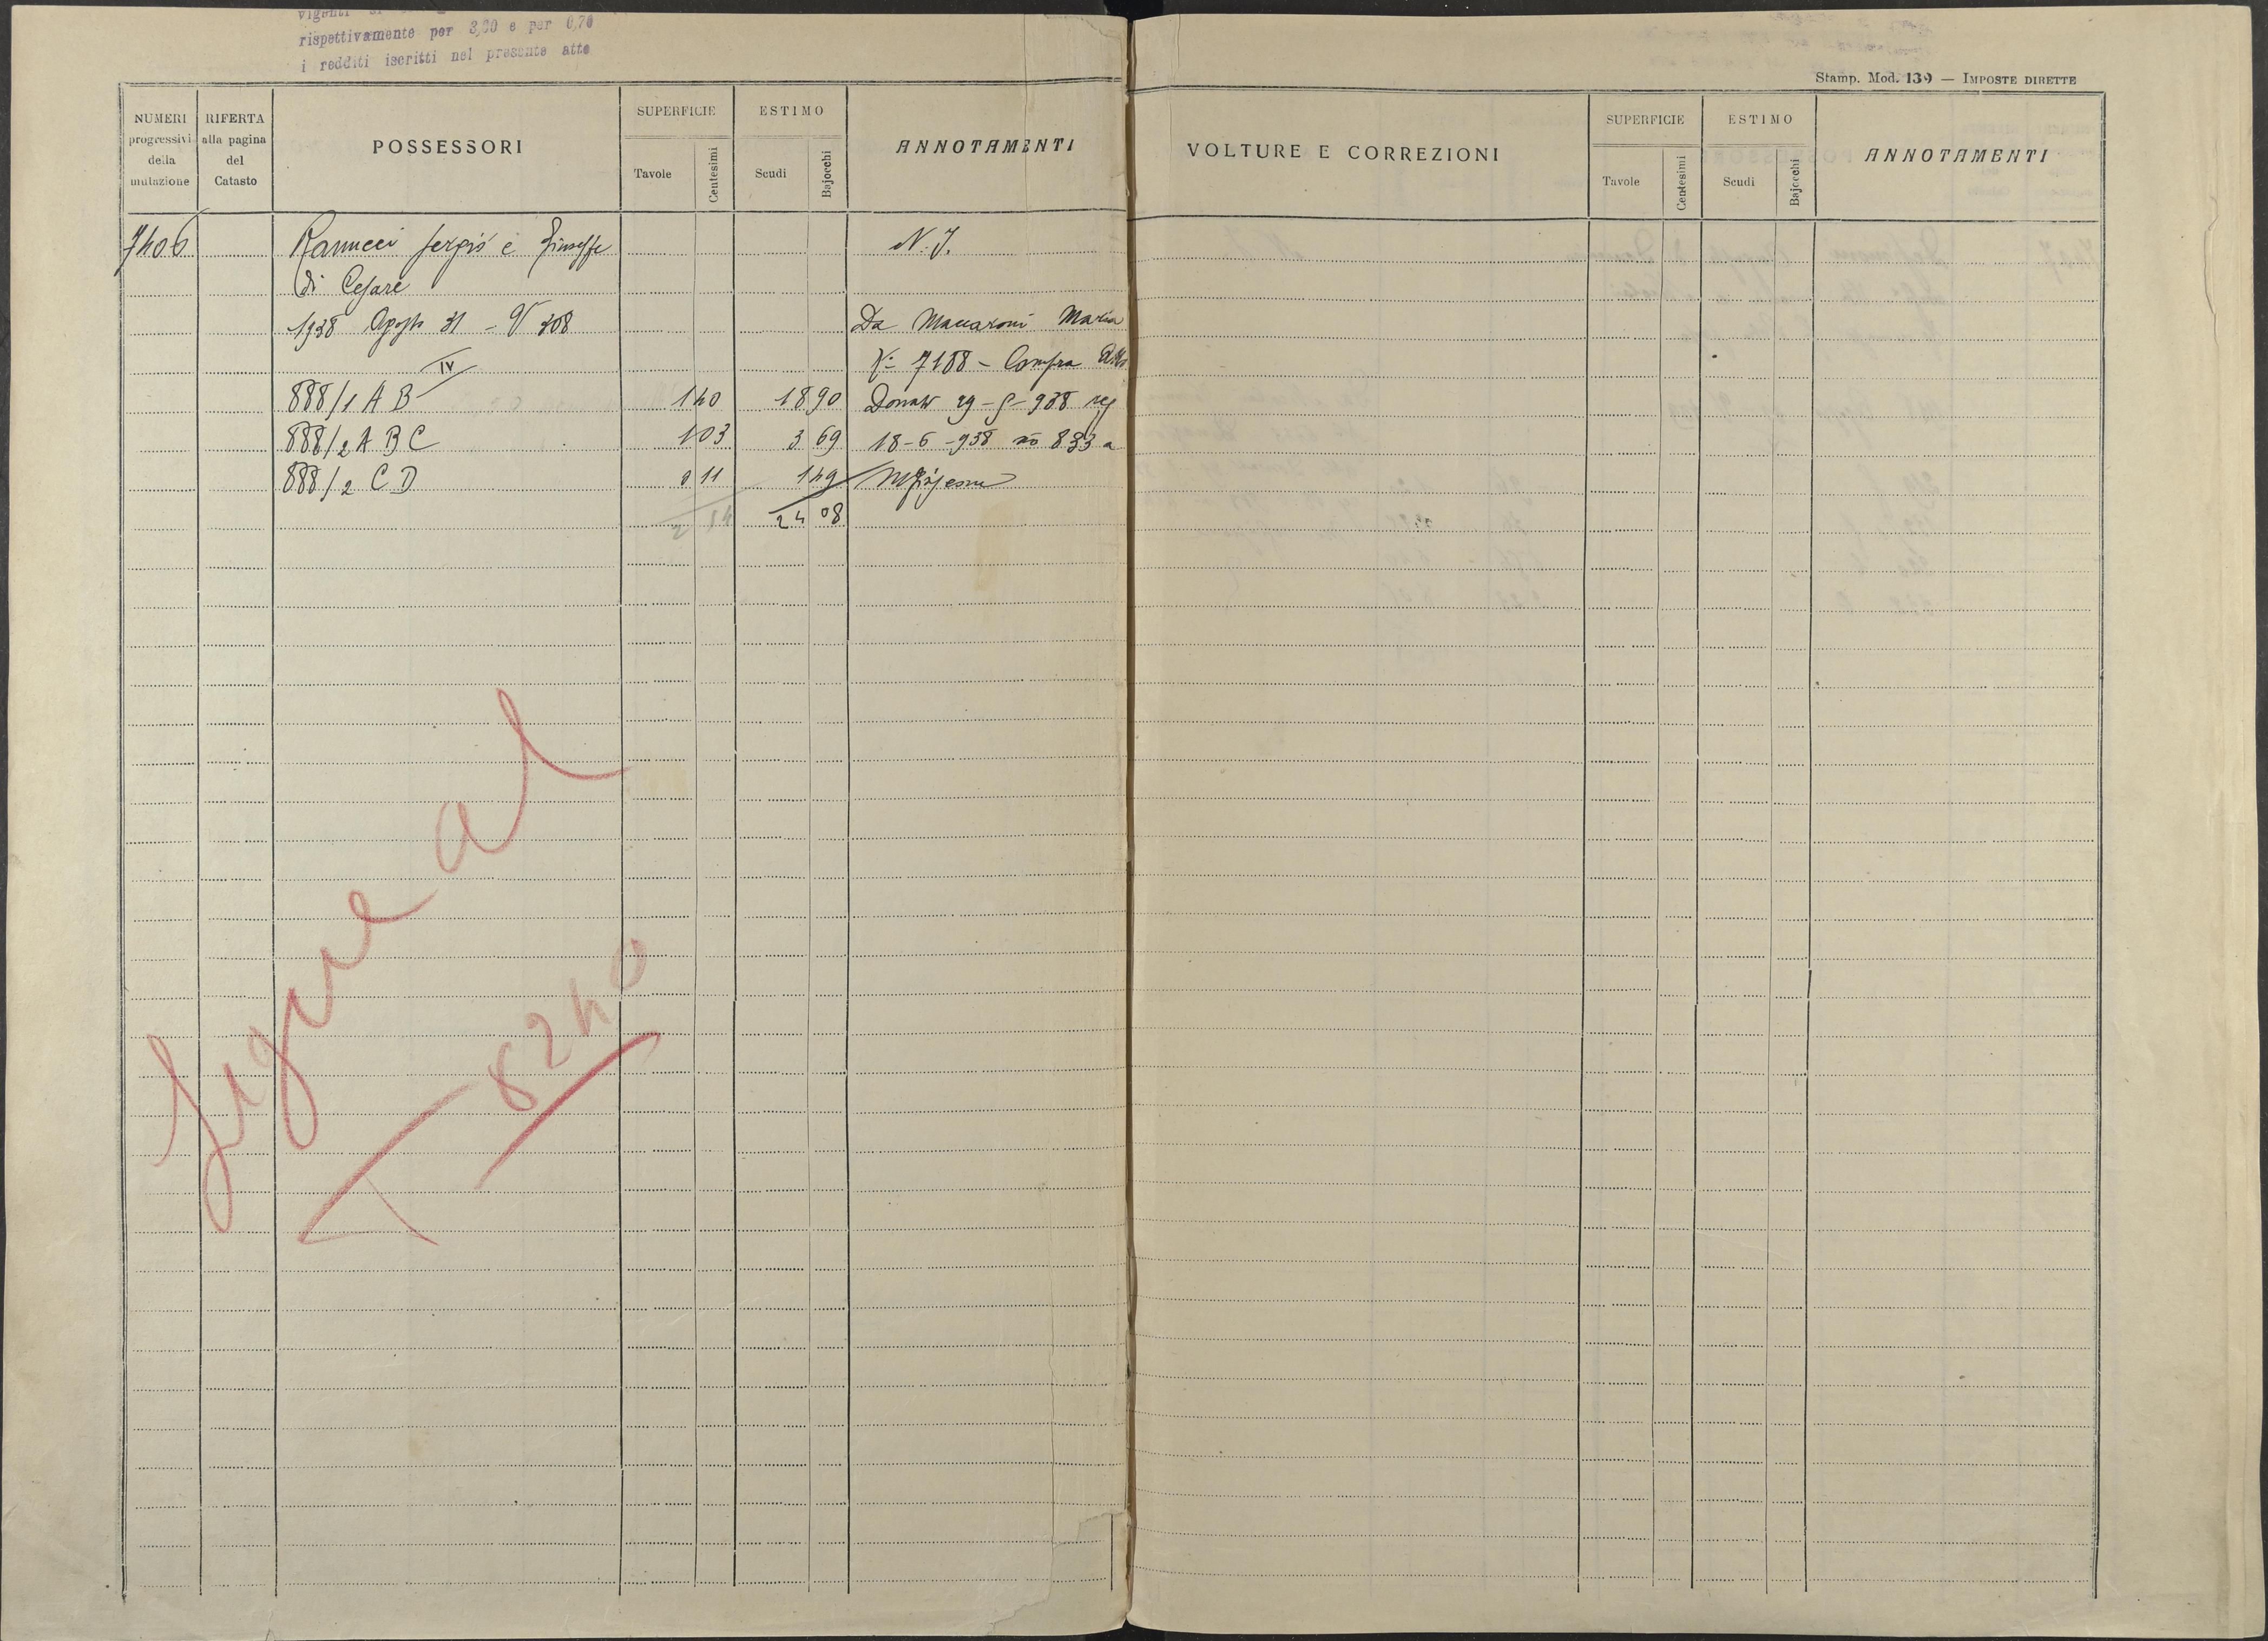 rispettivamente per 3,30 e per 0,70
i redditi iscritti nel presente atto
Stamp. Mod. 139 — IMPOSTE DIRETTE
NUMERI progressivi della mutazione
RIFERTA alla pagina del Catasto
POSSESSORI
SUPERFICIE
Tavole
Centesimi
ESTIMO
Scudi
Bajocchi
ANNOTAMENTI
VOLTURE E CORREZIONI
SUPERFICIE
Tavole
Centesimi
ESTIMO
Scudi
Bajocchi
ANNOTAMENTI
7406 Ranucci Sergio e Giuseppe N. I.
di Cesare
1938 Agosto 31 - V 308 Da Maccaroni Maria
No 7188 - Compra Atto
IV
888/1 A B 1 40 18 90 Donato 29-5-938 reg
888/2 A B C 1 03 3 69 18-6-938 no 833 a
888/2 C D 0 11 1 49
2 54 24 08
Segue al
8240